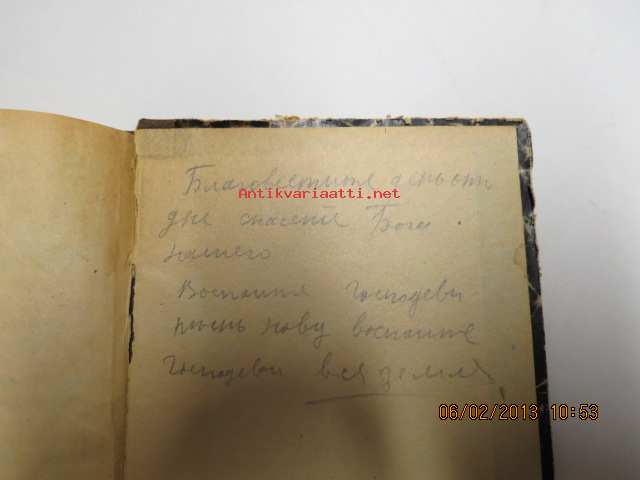 Благовестите день отъ
Antikvariaatti.net
дне спасение Бога
нашего
Воспойте Господеви
пѣснь нову воспойте
Господеви вся земля
06/02/2013 10:53